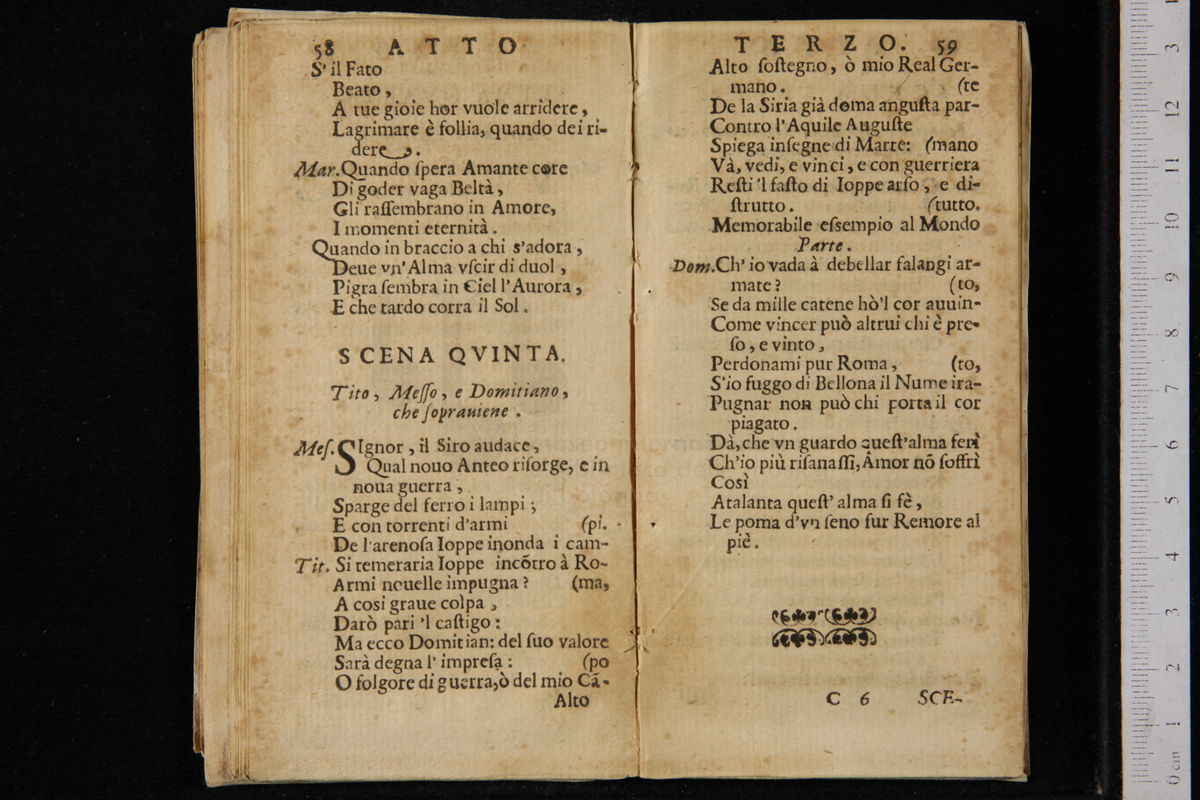 58 ATTO
S' il Fato
Beato,
A tue gioie hor vuole arridere,
Lagrimare è follia, quando dei ri-
dere.
Mar. Quando ſpera Amante core
Di goder vaga Beltà,
Gli raſſembrano in Amore,
I momenti eternità.
Quando in braccio a chi s'adora,
Deue vn' Alma vſcir di duol,
Pigra ſembra in Ciel l'Aurora,
E che tardo corra il Sol.
SCENA QVINTA.
Tito, Meſſo, e Domitiano,
che ſoprauiene.
Meſ. SIgnor, il Siro audace,
Qual nouo Anteo riſorge, e in
noua guerra,
Sparge del ferro i lampi;
E con torrenti d'armi (pi.
De l'arenoſa Ioppe inonda i cam-
Tit. Si temeraria Ioppe incõtro à Ro-
Armi nouelle impugna? (ma,
A cosi graue colpa,
Darò pari 'l caſtigo:
Ma ecco Domitian: del ſuo valore
Sarà degna l' impreſa: (po
O folgore di guerra, ò del mio Cã-
Alto
TERZO. 59
Alto ſoſtegno, ò mio Real Ger-
mano. (te
De la Siria già doma anguſta par-
Contro l'Aquile Auguſte
Spiega inſegne di Marte: (mano
Và, vedi, e vinci, e con guerriera
Reſti 'l faſto di Ioppe arſo, e di-
ſtrutto. (tutto.
Memorabile eſsempio al Mondo
Parte.
Dom. Ch' io vada à debellar falangi ar-
mate? (to,
Se da mille catene hò'l cor auuin-
Come vincer può altrui chi è pre-
ſo, e vinto,
Perdonami pur Roma, (to,
S'io fuggo di Bellona il Nume ira-
Pugnar non può chi porta il cor
piagato.
Dà, che vn guardo queſt'alma ferì
Ch'io più riſanaſſi, Amor nõ ſoffrì
Così
Atalanta queſt' alma ſi fè,
Le poma d'vn ſeno fur Remore al
piè.
C 6 SCE-
0 cm 1 2 3 4 5 6 7 8 9 10 11 12 3